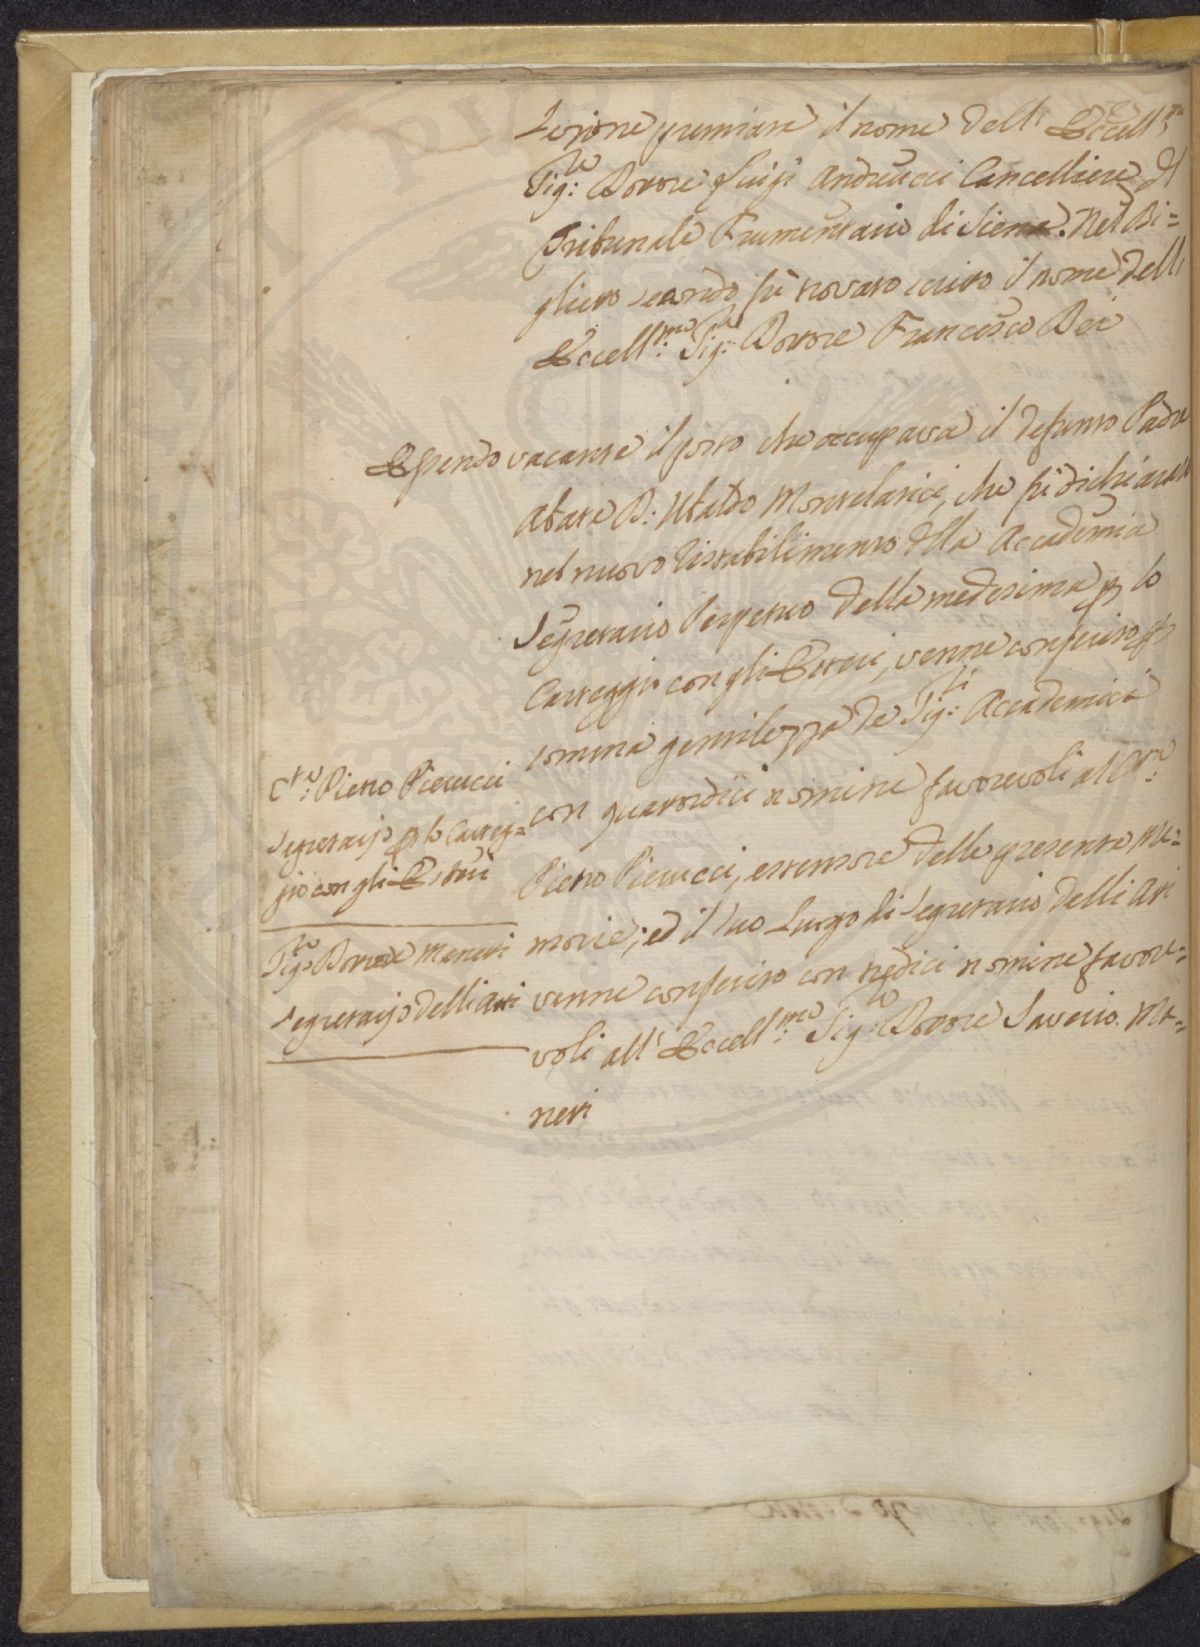 Lezione premiare il nome dell' Eccell.mo
Sig.re Dottore Luigi Andreucci Cancelliere del
Tribunale Frumentario di Siena. Nel Bi=
glietto secondo fù trovato scritto il nome dell'
Eccell.mo Sig.re Dottore Francesco Bei
Essendo vacante il posto che occupava il defunto Padre
Abate D. Ubaldo Montelatici, che fù dichiarato
nel nuovo ristabilimento della Accademia
Segretario Perpetuo della medesima per lo
Carteggio con gli Esteri, venne conferito per
somma gentilezza de Sig.ri Accademici
con quattordici nomine favorevoli al
Pietro Pierucci, estensore delle presenti Me=
morie; ed il suo Luogo di Segretario delli Atti
venne conferito con tredici nomine favore=
voli all' Eccell.mo Sig.re Dottore Saverio Ma=
netti
Pietro Pierucci
Segretario per lo Carteg=
gio con gli Esteri
Sig.re Dottore Manetti
Segretario delli Atti